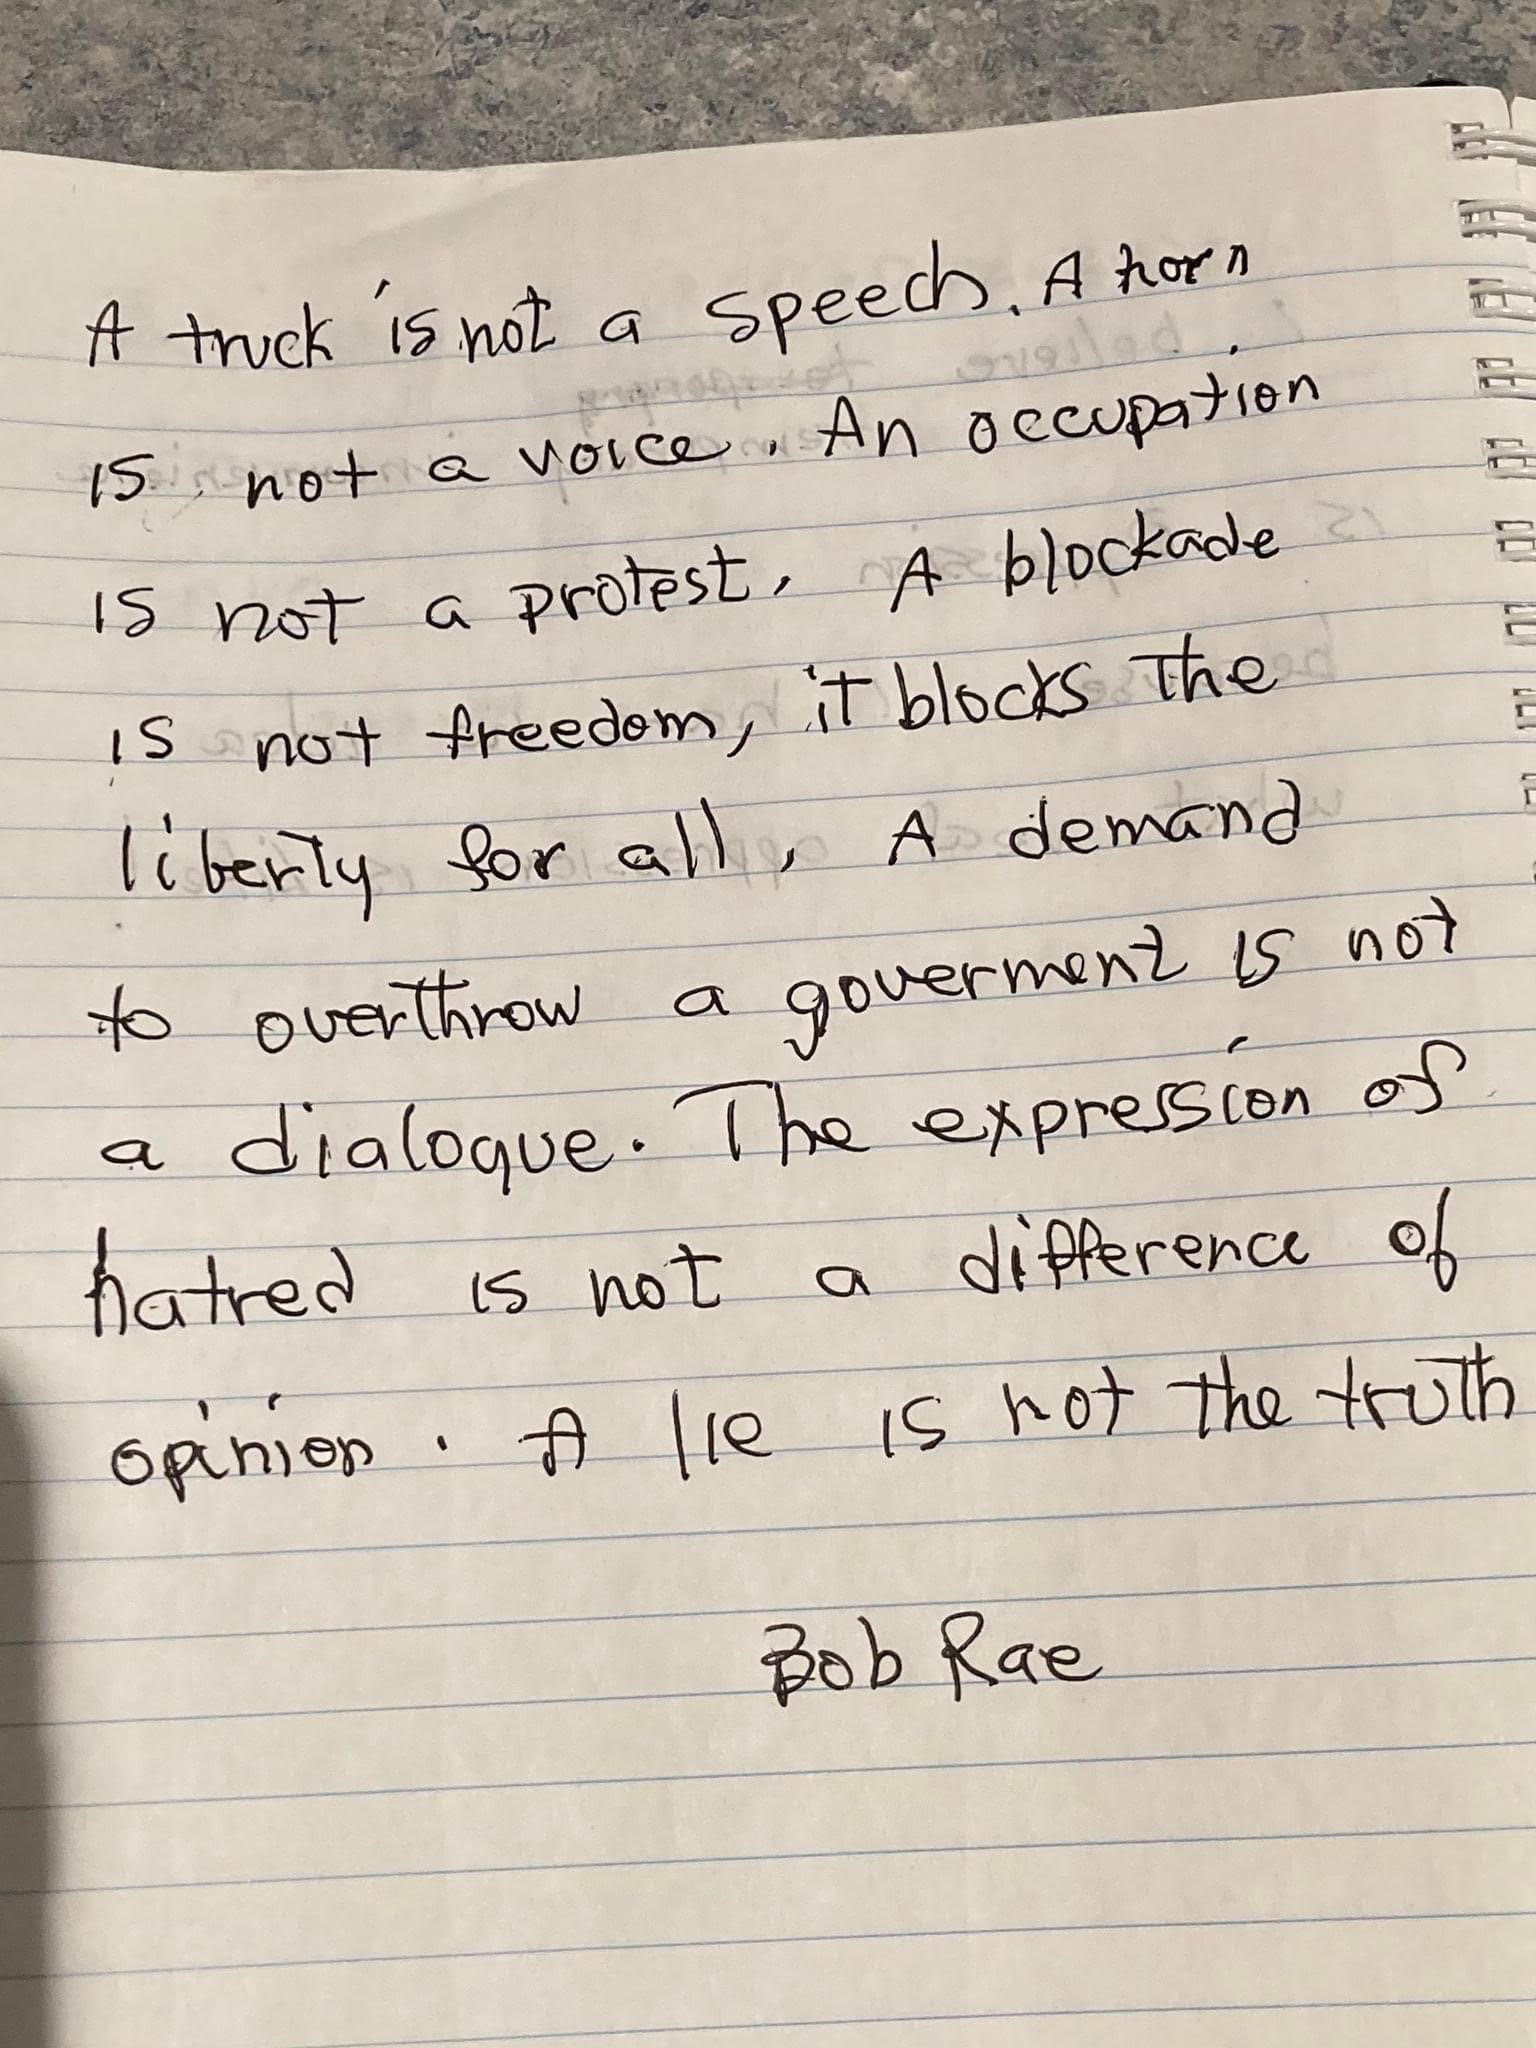 A truck is not a speech. A horn
is not a voice. An occupation
is not a protest. A blockade
is not freedom, it blocks the
liberty for all, A demand
to overthrow a goverment is not
a dialogue. The expression of
hatred is not a difference of
opinion. A lie is not the truth
Bob Rae